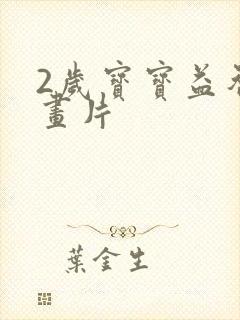 2歲寶寶益智
畫片
葉金生